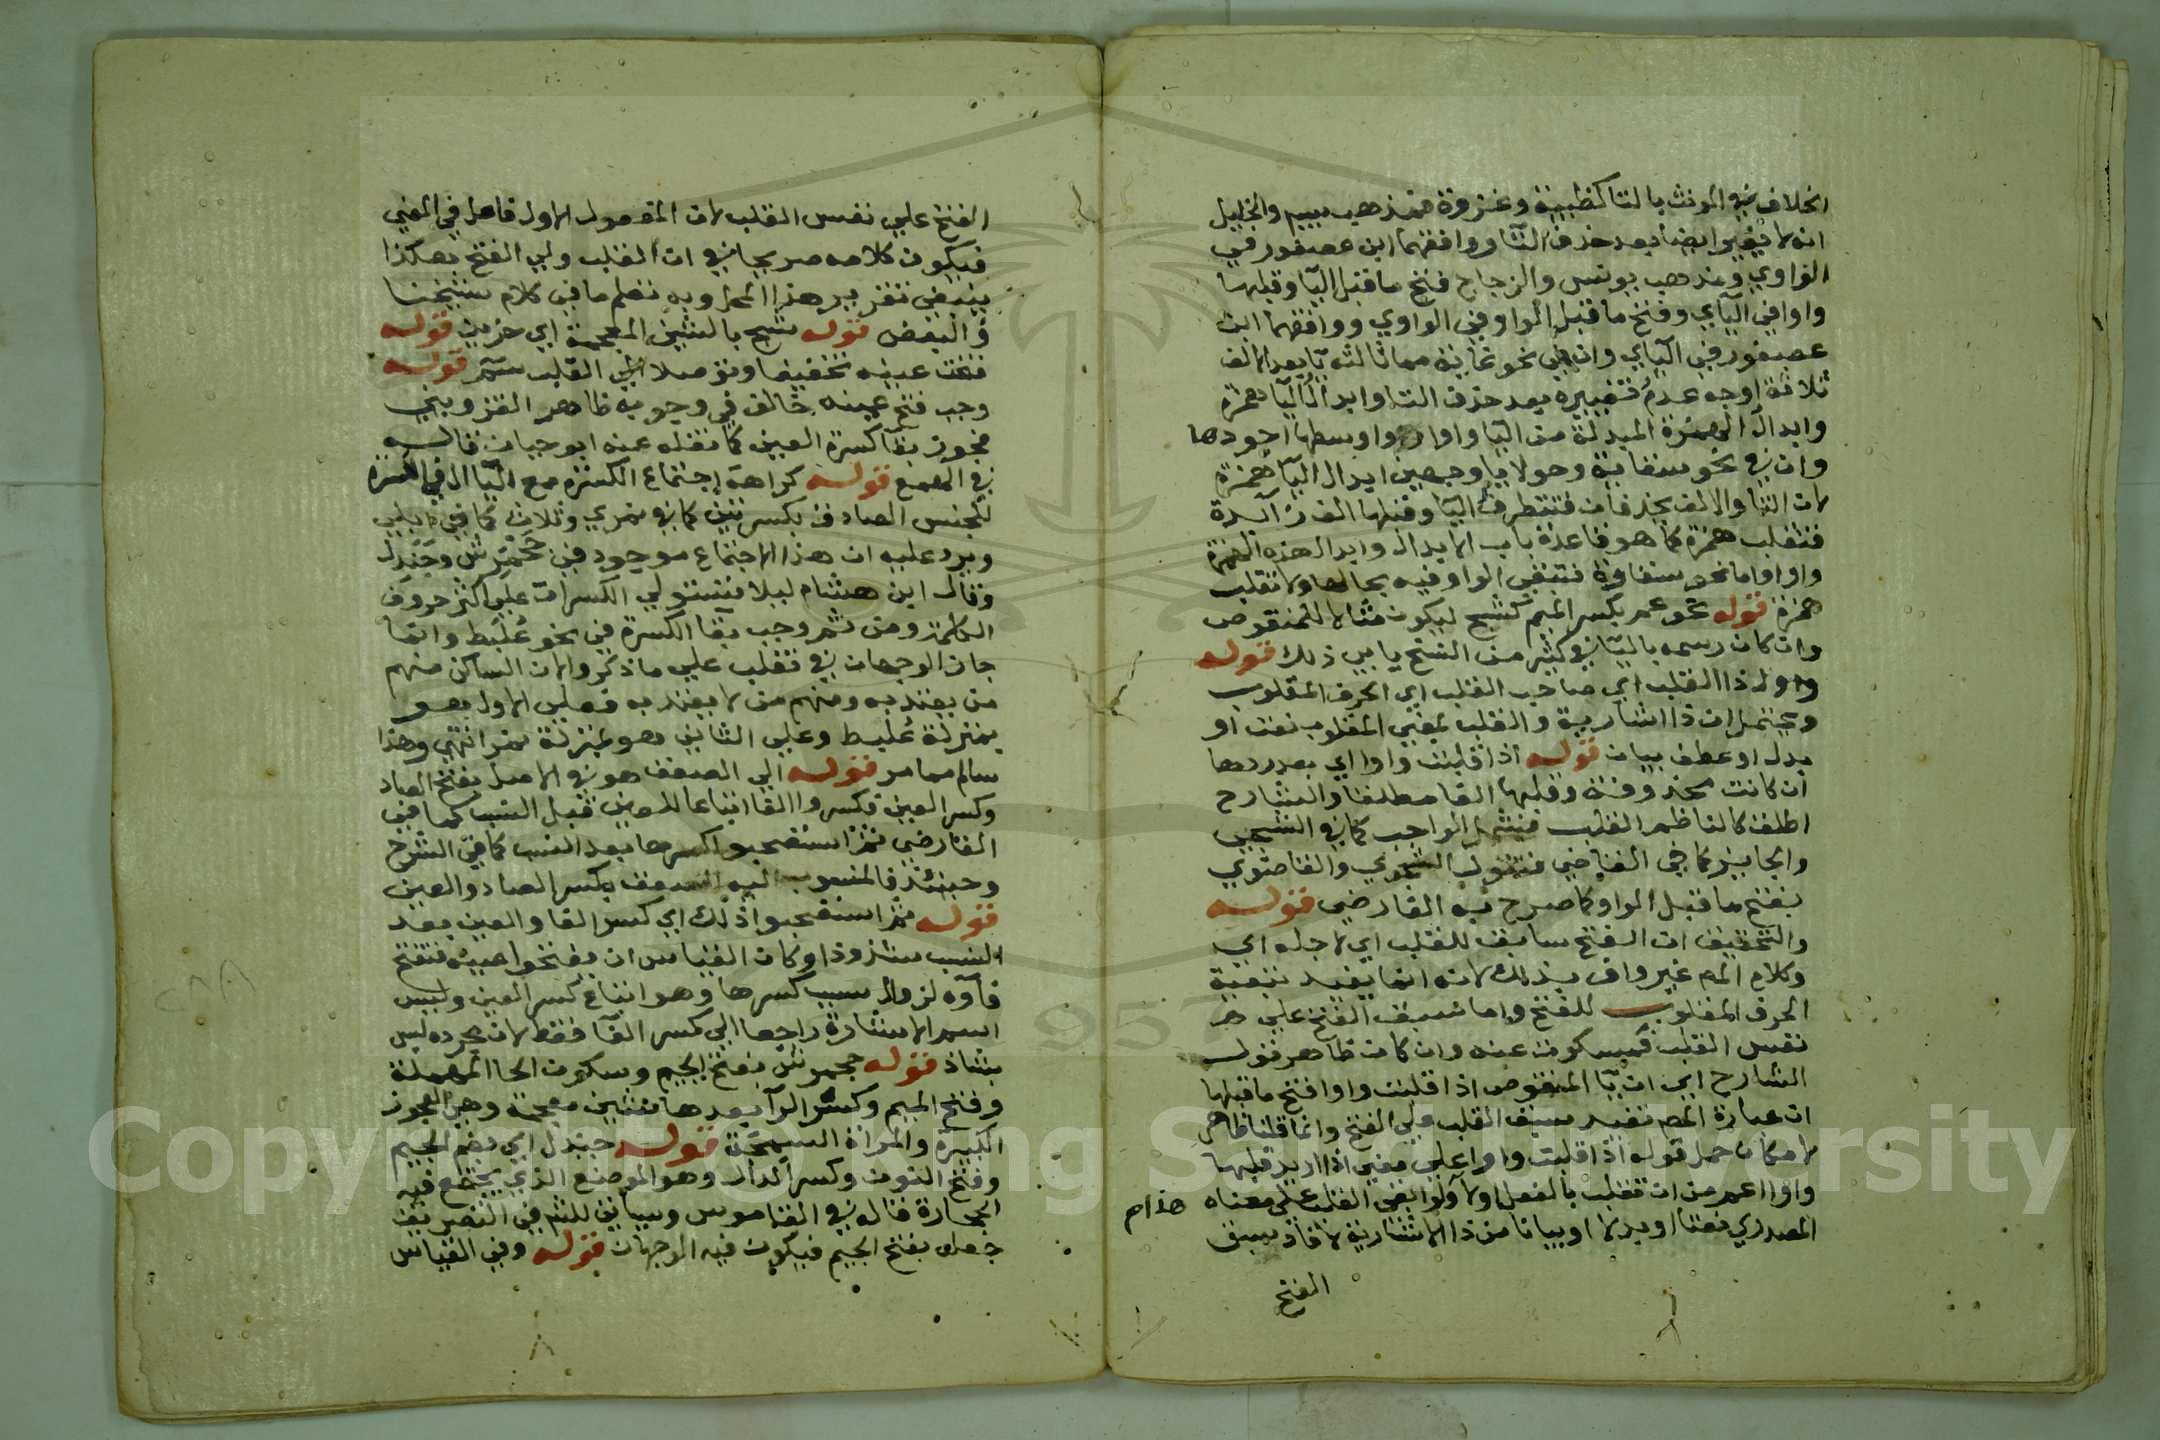 الخلاف في المونث بالتا كظبية وغزوة فمذهب سيبيه والخليل
انه لا يغير ايضا بعد حذف التا ووافقهما ابن عصفور في
الواوي ومذهب يونس والزجاج فتح ما قبل اليا وقبلها
واوا في اليآي وفتح ما قبل الواو في الواوي ووافقهما ابن
عصفور في اليآي وان في نحو غاية مما ثالثه يا بعد الالف
ثلاثة اوجه عدم تغييره بعد حذف التا وابدال اليا همزة
وابدال الهمزة المبدلة من اليا واوا واوسطها اجودها
وان في نحو سقاية وحولايا وجهين ابدال اليا همزة
لان التا والالف يحذفان فتتطرف اليا وقبلها الف زآيدة
فتقلب همزة كما هو قاعدة باب الابدال وابدال هذه الهمزة
واوا واما نحو سقاوة فتبقى الواو فيه بحالها ولا تقلب
همزة قوله نحو عم بكسر الميم كشج ليكون مثالا للمنقوص
وان كان رسمه باليا في كثير من النسخ يابي ذلك قوله
واول ذا القلب اي صاحب القلب اي الحرف المقلوب
ويحتمل ان ذا اشارية والقلب بمعنى المقلوب نعت او
بدل او عطف بيان قوله اذا قلبت واوا اي بعد ردها
ان كانت محذوفة وقلبها الفا مطلقا والشارح
اطلق كالناظم القلب فيشمل الواجب كما في الشجي
والجايز كما في القاضي فتقول الشجوي والقاضوي
بفتح ما قبل الواو كما صرح به الفارضي قوله
والتحقيق ان الفتح سابق للقلب اي لاجله اي
وكلام المص غير واف بذلك لانه انما يفيد تبعية
الحرف المقلوب للفتح واما سبق الفتح على
نفس القلب فمسكوت عنه وان كان ظاهر قول
الشارح اي ان يا المنقوص اذا قلبت واوا فتح ما قبلها
ان عبارة المص تفيد سبق القلب على الفتح وانما قلنا ظاهر
لامكان حمل قوله اذا قلبت واوا على معنى اذا اريد قلبها
واوا اعم من ان تقلب بالفعل اولا ولو ابقى القلب على معناه هذا م
المصدري نعتا او بدلا او بيانا من ذا الاشارية لافاد سبق
الفتح
الفتح على نفس القلب لان المفعول الاول فاعل في المعنى
فيكون كلامه صريحا في ان القلب ولي الفتح هكذا
ينبغي تقرير هذا المحل وبه تعلم ما في كلام شيخنا
والبعض قوله شج بالشين المعجمة اي حزين قوله
فتحت عينه تخفيفا وتوصلا الى القلب ثم قوله
وجب فتح عينه خالف في وجوبه طاهر القزويني
فجوز بقا كسرة العين كما نقله عنه ابو حيان قاله
في الهمع قوله كراهة اجتماع الكسرة مع اليا ال في الكسرة
للجنس الصادق بكسرتين كما في نمري وثلاث كما في ابلي
ويرد عليه ان هذا الاجتماع موجود في جحمرش وجندل
وقال ابن هشام ليلا تستولي الكسرات على اكثر حروف
الكلمة ومن ثم وجب بقا الكسرة في نحو علبط وانما
جاز الوجهان في تغلب على ما ذكروا لان الساكن منهم
من يعتد به ومنهم من لا يعتد به فعلى الاول هو
بمنزلة علبط وعلى الثاني هو بمنزلة نمر انتهى وهذا
سالم مما مر قوله الى الصعق هو في الاصل بفتح الصاد
وكسر العين فكسروا الفا اتباعا للعين قبل النسب كما في
الفارضي ثم استصحبوا كسرها بعد النسب كما في الشرح
وحينئذ فالمنسوب اليه الصعق بكسر الصاد والعين
قوله ثم استصحبوا ذلك اي كسر الفا والعين بعد
النسب شذوذا وكان القياس ان يفتحوا عينه فتفتح
فآوه لزوال سبب كسرها وهو اتباع كسر العين وليس
اسم الاشارة راجعا الى كسر الفا فقط لان مجرده ليس
بشاذ قوله جحمرش بفتح الجيم وسكون الحا المهملة
وفتح الميم وكسر الرآ بعدها شين معجمة وهي العجوز
الكبيرة والمراة السمجة قوله جندل اي بضم الجيم
وفتح النون وكسر الدال وهو الموضع الذي يجتمع فيه
الحجارة قاله في القاموس وسياتي للشم في التصريف
جعله بفتح الجيم فيكون فيه الوجهان قوله وفي القياس